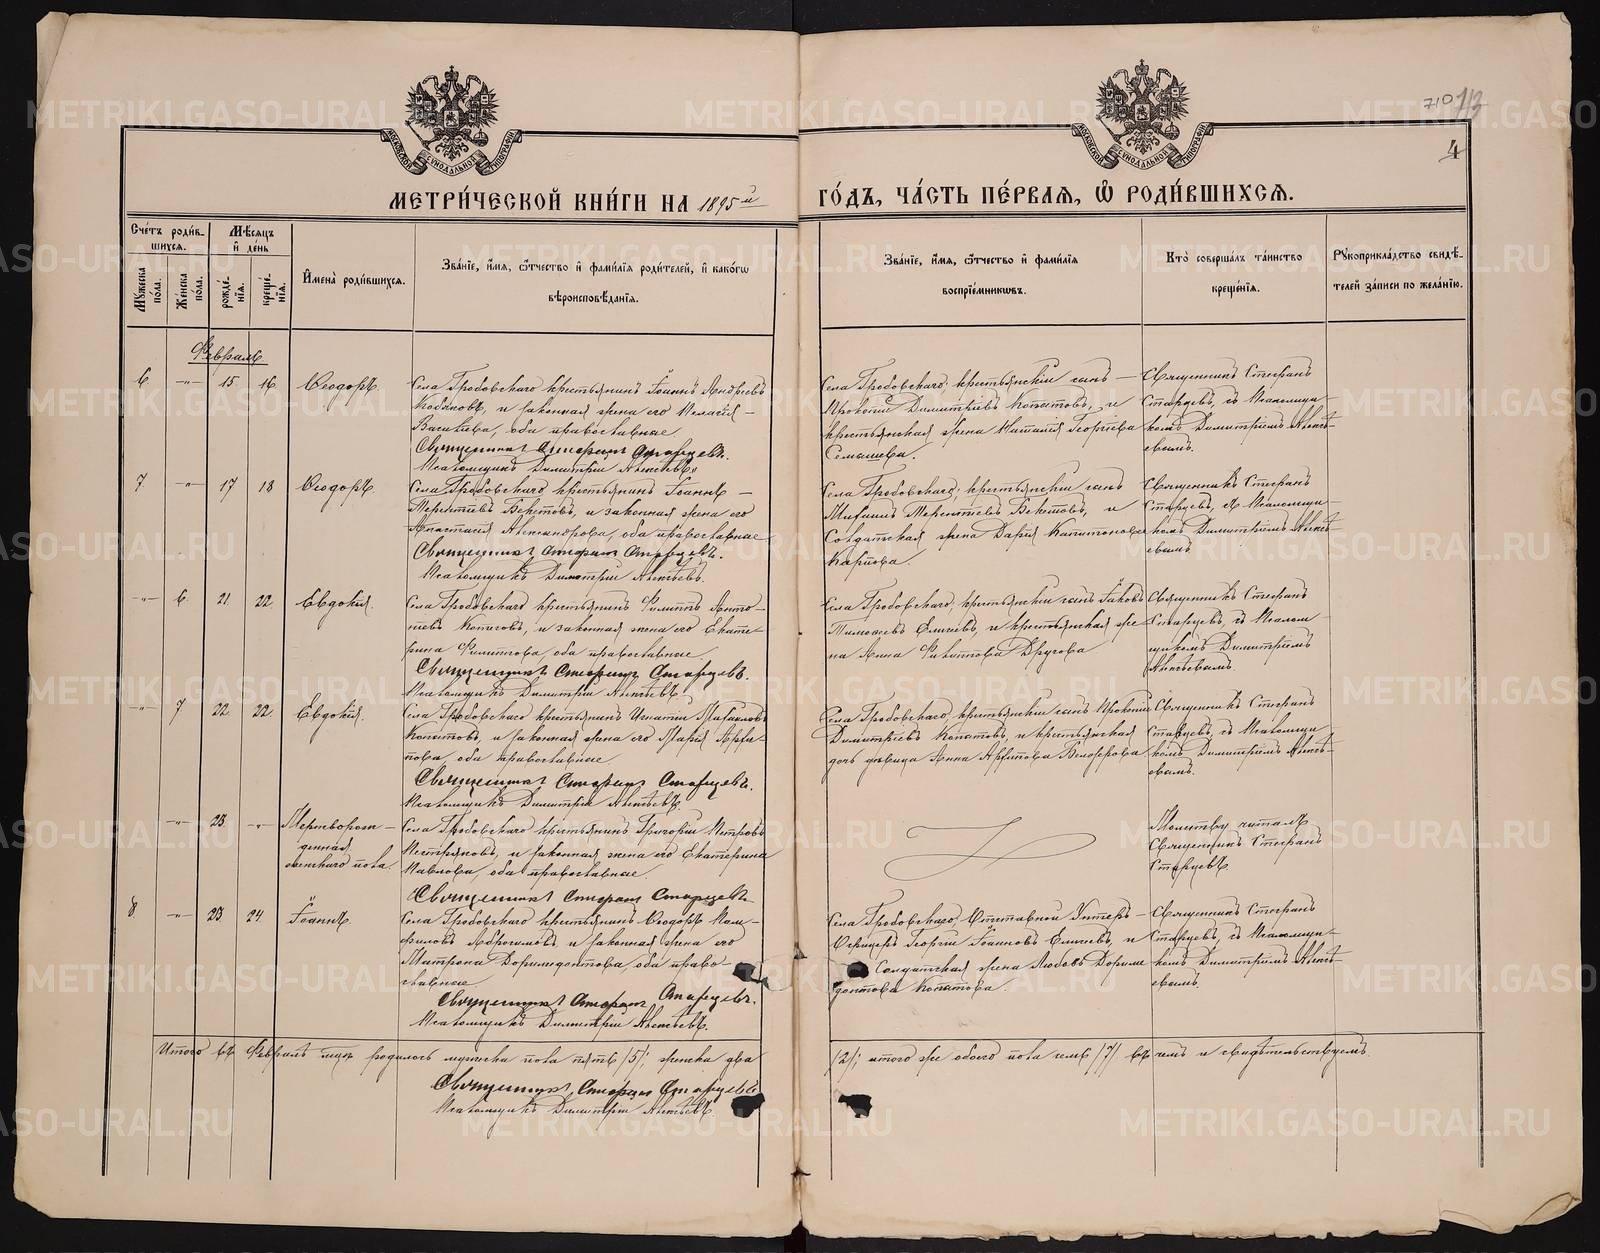 710 113
4
МОСКОВСКОЙ СѴНОДАЛЬНОЙ ТИПОГРАФІИ
МОСКОВСКОЙ СѴНОДАЛЬНОЙ ТИПОГРАФІИ
МЕТРИ́ЧЕСКОЙ КНИ́ГИ НА 1895й
ГО́ДЪ, ЧА́СТЬ ПЕ́РВАЯ, Ѡ РОДИ́ВШИХСЯ.
Сче́тъ роди́в-
шихся.
Му́жеска по́ла.
Же́нска по́ла.
Мѣ́сяцъ
и де́нь
рожде́-
нія.
креще́-
нія.
И́мена роди́вшихся.
Зва́ніе, и́мя, ѻ́тчество и фами́лія роди́телей, и како́гѡ
вѣроисповѣ́данія.
Зва́ніе, и́мя, ѻ́тчество и фами́лія
воспріе́мниковъ.
Кто̀ соверша́лъ та́инство
креще́нія.
Рукоприкла́дство свидѣ́-
телей за́писи по жела́нію.
Февраль
6. -"- 15 16. Ѳеодоръ.
Села Гробовскаго крестьянинъ Іоаннъ
и законная жена его Пелагія
Васильева, оба православные
Священникъ Стефанъ Старцевъ.
Псаломщикъ Димитрій Алексѣевъ
Села Гробовскаго, крестьянскій сынъ
Прокопій Димитріевъ Копытовъ, и
крестьянская жена Наталія Георгіева
Семашева.
Священникъ Стефанъ
Старцевъ, съ Псаломщи-
комъ Димитріемъ Алексѣ-
евымъ.
7. -"- 17 18 Ѳеодоръ.
Села Гробовскаго крестьянинъ Іоаннъ
Терентіевъ Бекетовъ, и законная жена его
Анастасія Александрова, оба православные
Священникъ Стефанъ Старцевъ.
Псаломщикъ Димитрій Алексѣевъ.
Села Гробовскаго, крестьянскій сынъ
Михаилъ Терентіевъ Бекетовъ, и
Солдатская жена Дарія Капитонова
Карпова.
Священникъ Стефанъ
Старцевъ, съ Псаломщи-
комъ Димитріемъ Алексѣ-
евымъ
-"- 6. 21. 22. Евдокія.
Села Гробовскаго крестьянинъ Филиппъ
Копытовъ, и законная жена его Екате-
рина Филиппова, оба православные
Священникъ Стефанъ Старцевъ.
Псаломщикъ Димитрій Алексѣевъ
Села Гробовскаго, крестьянскій сынъ Іаковъ
Тимофеевъ Еличевъ, и крестьянская же-
на Анна Филиппова Другова
Священникъ Стефанъ
Старцевъ, съ Псалом-
щикомъ Димитріемъ
Алексѣевымъ.
-"- 7 22. 22. Евдокія.
Села Гробовскаго крестьянинъ Игнатій Михаиловъ
Копытовъ, и законная жена его Марія
оба православные
Священникъ Стефанъ Старцевъ.
Псаломщикъ Димитрій Алексѣевъ.
Села Гробовскаго, крестьянскій сынъ Прокопій
Димитріевъ Копытовъ, и крестьянская
дочь дѣвица Анна
Священникъ Стефанъ
Старцевъ, съ Псаломщи-
комъ Димитріемъ Алексѣ-
евымъ.
-"- 23. -"- Мертворож-
денная
женскаго пола.
Села Гробовскаго крестьянинъ Григорій Петровъ
Пестряковъ, и законная жена его Екатерина
Павлова, оба православные.
Священникъ Стефанъ Старцевъ
Молитву читалъ
Священникъ Стефанъ
Старцевъ
8. -"- 23 24 Іоаннъ
Села Гробовскаго крестьянинъ Ѳеодоръ Пам-
филовъ и законная жена его
Матрона Доримедонтова, оба право-
славные
Священникъ Стефанъ Старцевъ.
Псаломщикъ Димитрій Алексѣевъ.
Села Гробовскаго, Отставной Унтеръ-
Офицеръ Георгій Іоанновъ Еличевъ, и
Солдатская жена Любовь Дориме-
донтова Копытова.
Священникъ Стефанъ
Старцевъ, съ Псаломщи-
комъ Димитріемъ Алексѣ-
евымъ.
Итого въ Февралѣ мцѣ родилось мужеска пола пять /5/; женска два
/2/; итого же обоего пола семь /7/ въ чемъ и свидѣтельствуемъ.
Священникъ Стефанъ Старцевъ
Псаломщикъ Димитрій Алексѣевъ
METRIKI.GASO-URAL.RU